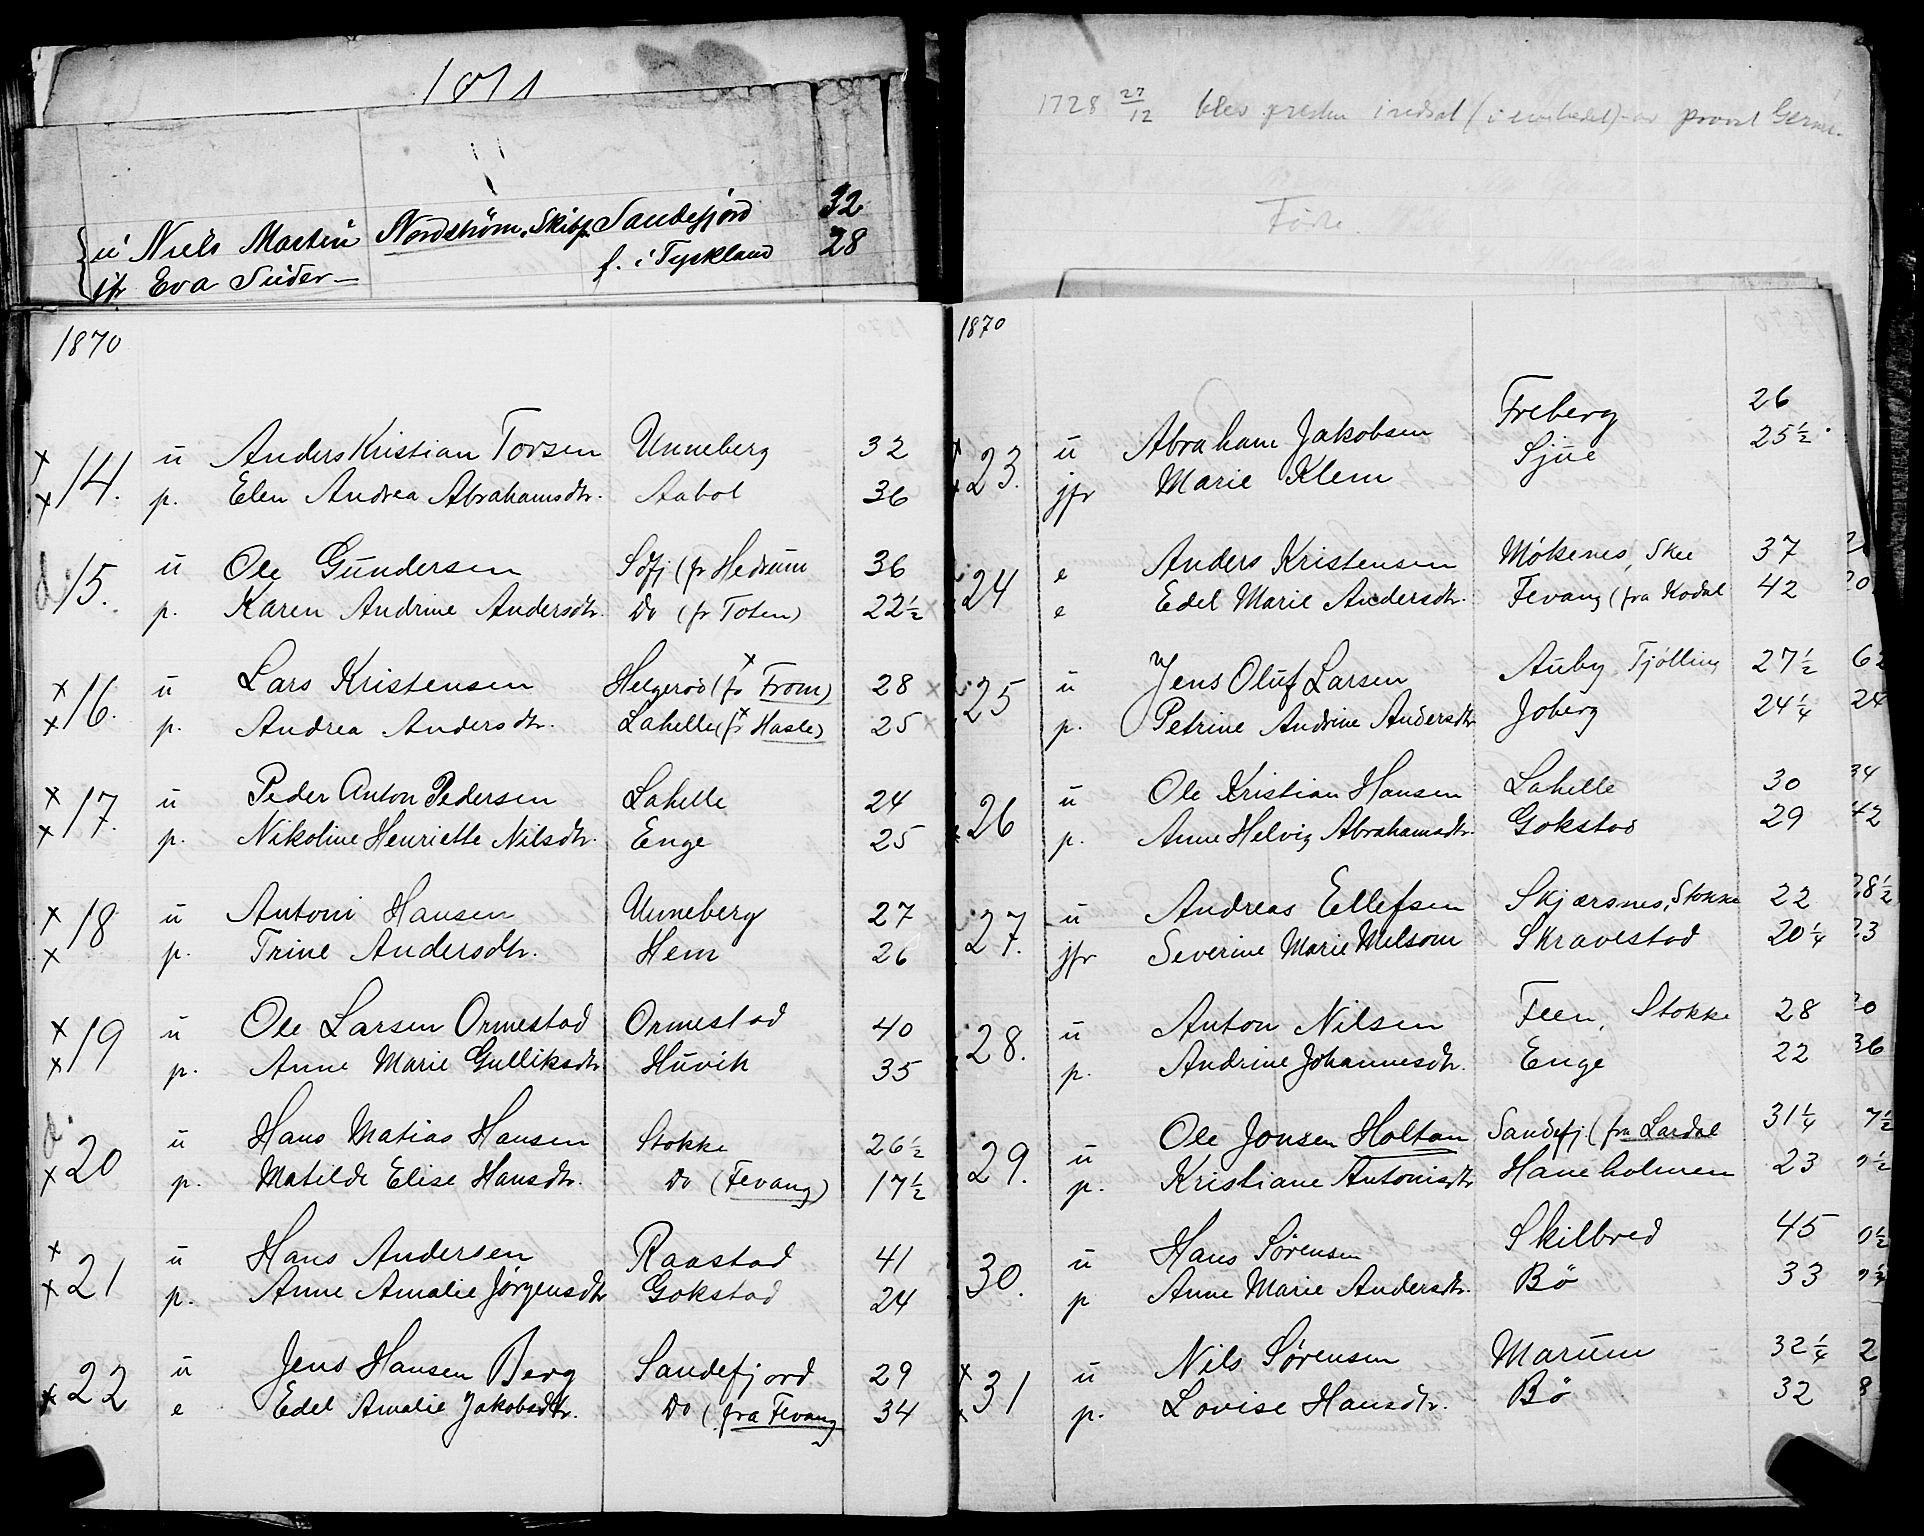 1871
ü Niels Martin Nordstrøm, Skibsf. Sandefjord 32
jfr Eva Suder— f. i Tyskland 28
1870
x 14. ü Anders Kristian Torsen Unneberg 32
x p. Elen Andrea Abrahamsdtr. Aabol 36
15. ü Ole Gundersen Sdfj (fr Hedrum 36
p. Karen Andrine Andersdtr. Do (fr Toten) 22½
x 16. ü Lars Kristensen Helgerød (fr From) 28
x p. Andrea Andersdtr. Lahelle (fr Hasle) 25
x 17. ü Peder Anton Pedersen Lahelle 24
x p. Nikoline Henriette Nilsdtr. Enge 25
x 18 ü Antoni Hansen Unneberg 27
x p. Trine Andersdtr. Hem 26
x 19 ü Ole Larsen Ormestad Ormestad 40
x p. Anne Marie Gulliksdtr Huvik 35
20 ü Hans Matias Hansen Stokke 26½
x p. Matilde Elise Hansdtr. Do (Fevang) 17½
x 21 ü Hans Andersen Raastad 41
x p. Anne Amalie Jørgensdtr Gokstad 24
22 ü Jens Hansen Berg Sandefjord 29
x e Edel Amalie Jakobsdtr. Do (fra Fevang 34
1728 27/12 blev presten indsat (i embedet) av provst
Fødte.
1870
x 23. ü Abraham Jakobsen Freberg 26
x jfr Marie Klem Sjüe 25½
24 e Anders Kristensen Møkenes, Skee 37
e Edel Marie Andersdtr. Fevang (fra Kodal 42
25 ü Jens Oluf Larsen Auby Tjølling 27½
p. Petrine Andrine Andersdtr Joberg 24¼
26 ü Ole Kristian Hansen Lahelle 30
p. Anne Helvig Abrahamsdtr. Gokstad 29
27. ü Andreas Ellefsen Skjærsnes, Stokke 22
jfr Severine Marie Melsom Skravestad 20¼
28. ü Anton Nilsen Feen, Stokke 28
p. Andrine Johannesdtr. Enge 22
29. ü Ole Jonsen Holtan Sandefj. (fra Lardal 31¼
p. Kristiane Antonisdtr Haneholmen 23
30. ü Hans Sørensen Skilbred 45
p Anne Marie Andersdtr. Bö 33
x 31 ü Nils Sørensen Marum 32¼
x p. Lovise Hansdtr. Bö 32